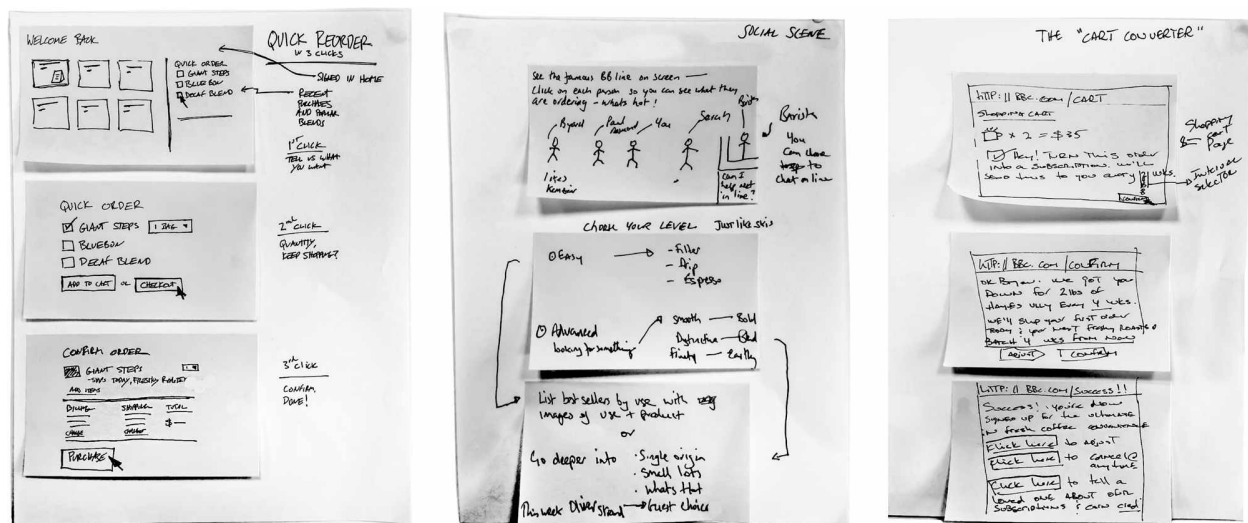 WELCOME BACK
QUICK ORDER
GIANT STEPS
BLUEBON
DECAF BLEND
QUICK REORDER
IN 3 CLICKS
SIGNED IN HOME
RECENT
PURCHASES
AND POPULAR
BLENDS
1ST CLICK
TELL US WHAT
YOU WANT
QUICK ORDER
GIANT STEPS 1 BAG
BLUEBON
DECAF BLEND
ADD TO CART OR CHECKOUT
2nd CLICK
QUANTITY,
KEEP SHOPPING?
CONFIRM ORDER
GIANT STEPS
SHIPS TODAY, FRESHLY ROASTED
ADD ITEMS
BILLING SHIPPING TOTAL
$
CHANGE
PURCHASE
3rd CLICK
CONFIRM,
DONE!
SOCIAL SCENE
See the famous BB line on screen —
Click on each person so you can see what they
are ordering - whats hot!
Bryan Paul You Sarah
likes
can I
help next
in line?
Barista
You
Can
to
chat online
YOUR LEVEL Just like skis
Easy
- Filter
- Drip
- Espresso
Advanced
looking for something
Smooth — Bold
Distinctive
Fruity — Earthy
List best sellers by use with
images of use + product
or
Go deeper into · Single origin
· Small lots
· Whats Hot
This week Oliver Strand → Guest Choice
THE "CART CONVERTER"
HTTP://BBC.COM/CART
SHOPPING CART
x 2 = $35
HEY! TURN THIS ORDER
INTO A SUBSCRIPTION. WE'LL
SEND THIS TO YOU EVERY 2 WKS.
Shopping
Cart
Page
INTERVAL
SELECTOR
HTTP://BBC.COM/CONFIRM
OK Bryan. WE GOT YOU
DOWN FOR 2 lbs OF
HAYES VLLY EVERY 4 WKS.
WE'LL SHIP your FIRST ORDER
TODAY & your NEXT FRESHLY ROASTED
BATCH 4 WKS FROM NOW
ADJUST CONFIRM
HTTP://BBC.COM/SUCCESS!!
SUCCESS! YOU'RE NOW
SIGNED UP FOR THE ULTIMATE
IN FRESH COFFEE CONVENIENCE
Click here to ADJUST
Click here to CANCEL
ANYTIME
Click here to tell a
LOVED ONE ABOUT OUR
SUBSCRIPTIONS &